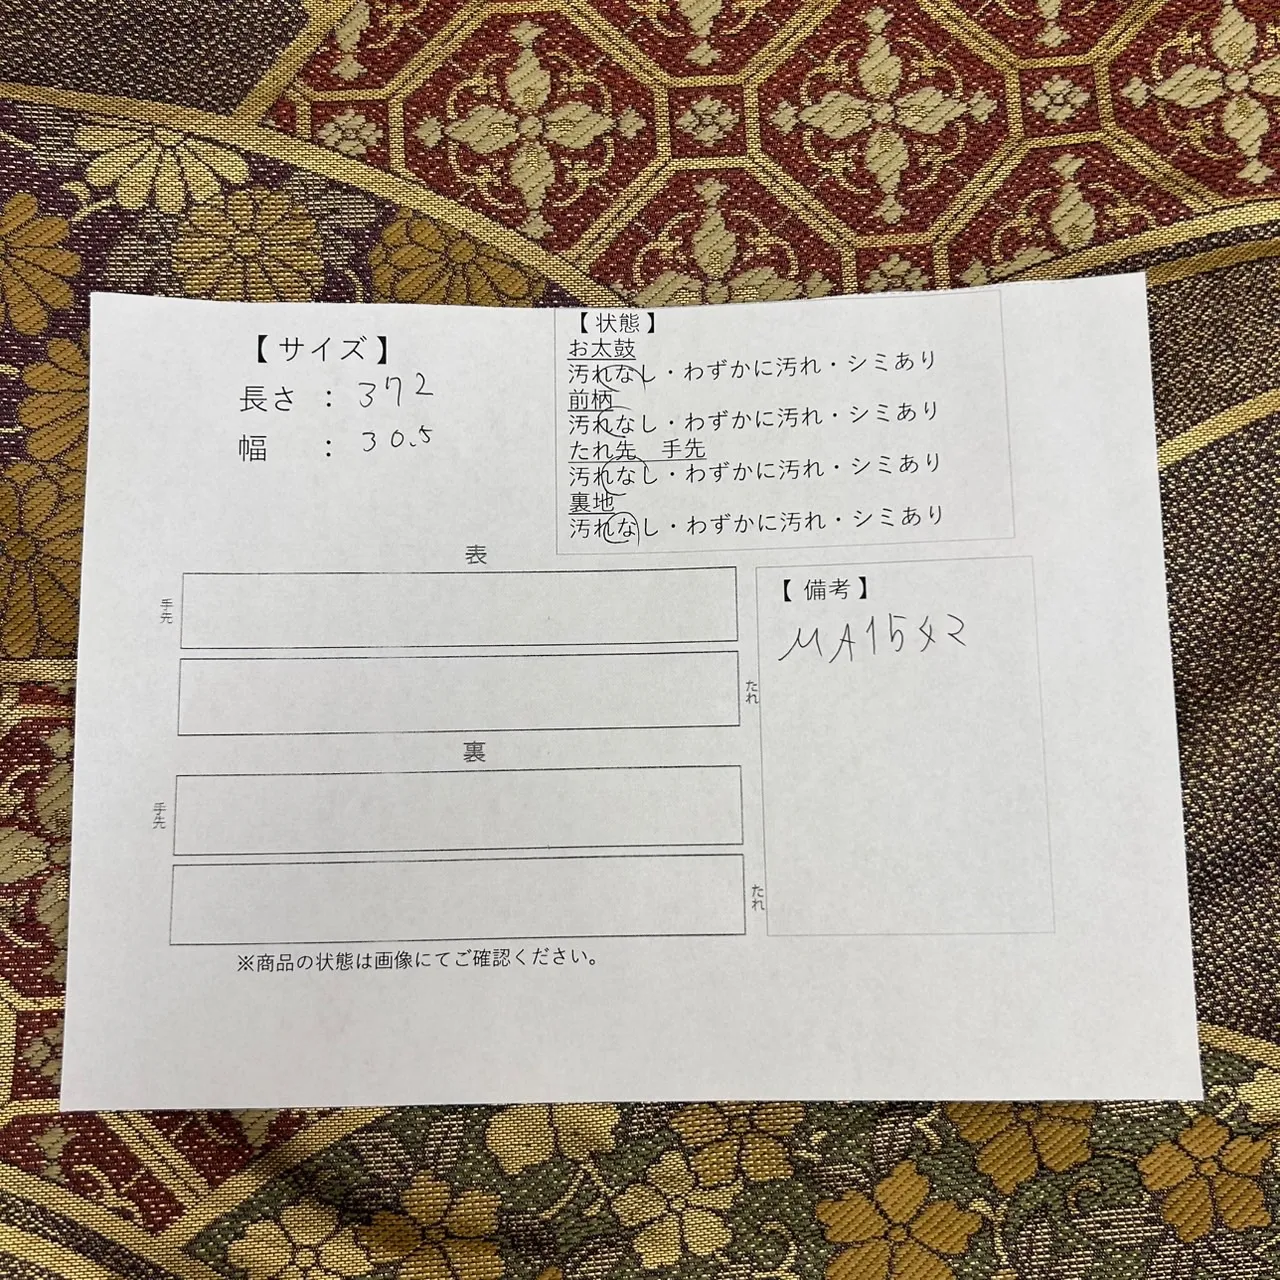 【 サイズ 】
長さ : 372
幅 : 30.5
【 状態 】
お太鼓
汚れなし・わずかに汚れ・シミあり
前柄
汚れなし・わずかに汚れ・シミあり
たれ先 手先
汚れなし・わずかに汚れ・シミあり
裏地
汚れなし・わずかに汚れ・シミあり
表
手先
たれ
裏
手先
たれ
【 備考 】
MA1542
※商品の状態は画像にてご確認ください。